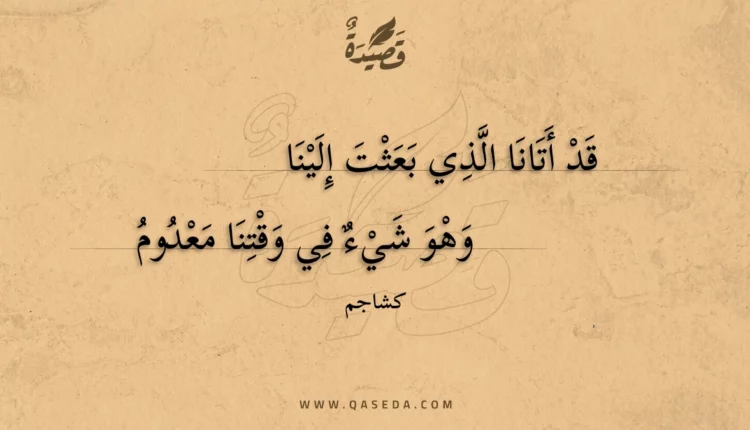 قَصِيْدَةٌ
قَدْ أَتَانَا الَّذِي بَعَثْتَ إِلَيْنَا
وَهْوَ شَيْءٌ فِي وَقْتِنَا مَعْدُومُ
كشاجم
WWW.QASEDA.COM